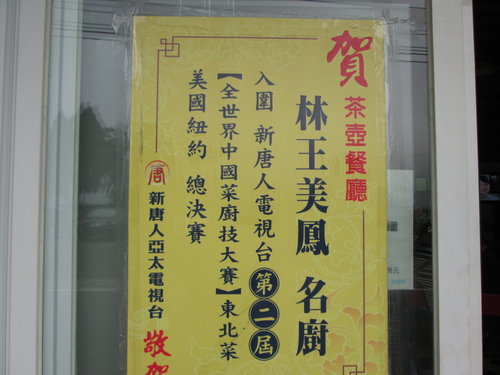 賀 茶壺餐廳
林王美鳳 名廚
入圍 新唐人電視台第二屆
【全世界中國菜廚技大賽】東北菜
美國紐約 總決賽
唐 新唐人亞太電視台 敬賀